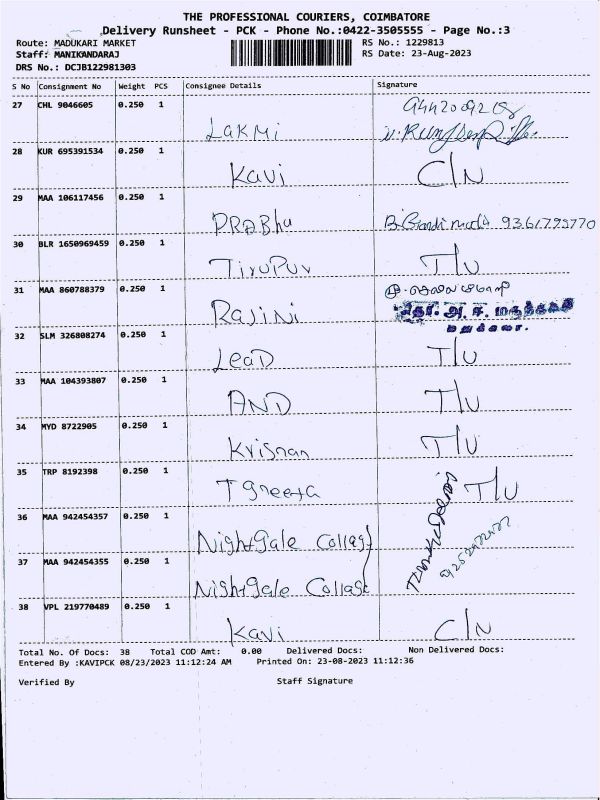 THE PROFESSIONAL COURIERS, COIMBATORE
Delivery Runsheet - PCK - Phone No.:0422-3505555 - Page No.:3
Route: MADUKARI MARKET RS No.: 1229813
Staff: MANIKANDARAJ RS Date: 23-Aug-2023
DRS No.: DCJB122981303
S No Consignment No Weight PCS Consignee Details Signature
27 CHL 9046605 0.250 1 Lakmi
28 KUR 695391534 0.250 1 Kavi C/N
29 MAA 106117456 0.250 1 PRABhu
30 BLR 1650969459 0.250 1 Tirupur T/U
31 MAA 860788379 0.250 1 Rajini
32 SLM 326808274 0.250 1 Lead T/U
33 MAA 104393807 0.250 1 AND T/U
34 MYD 8722905 0.250 1 Krisnan T/U
35 TRP 8192398 0.250 1 T Greeta T/U
36 MAA 942454357 0.250 1 Nightgale Collage
37 MAA 942454355 0.250 1 Nightgale Collage
38 VPL 219770489 0.250 1 Kavi C/N
Total No. Of Docs: 38 Total COD Amt: 0.00 Delivered Docs: Non Delivered Docs:
Entered By :KAVIPCK 08/23/2023 11:12:24 AM Printed On: 23-08-2023 11:12:36
Verified By Staff Signature